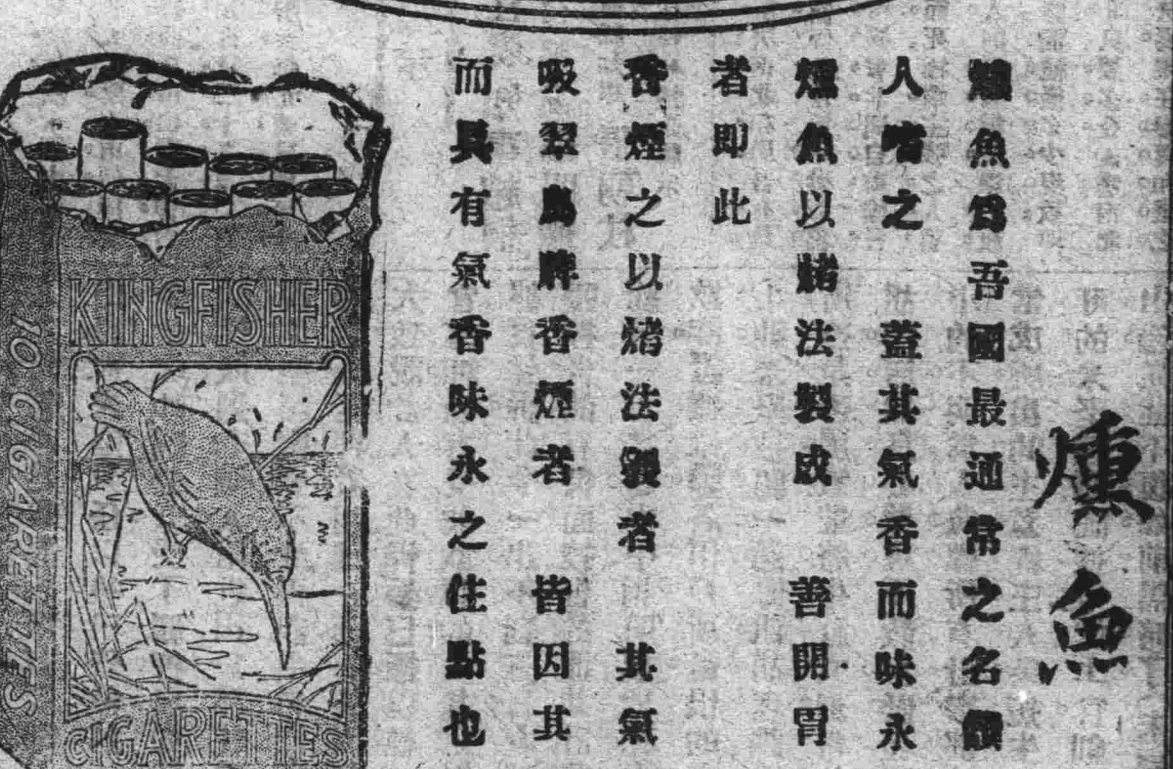 燻魚
燻魚爲吾國最通常之名饌
人嗜之 蓋其氣香而味永
燻魚以烤法製成 善開胃
者即此
香煙之以烤法製者 其氣
吸翠鳥牌香煙者 皆因其
而具有氣香味永之佳點也
KINGFISHER
CIGARETTES
10 CIGARETTES